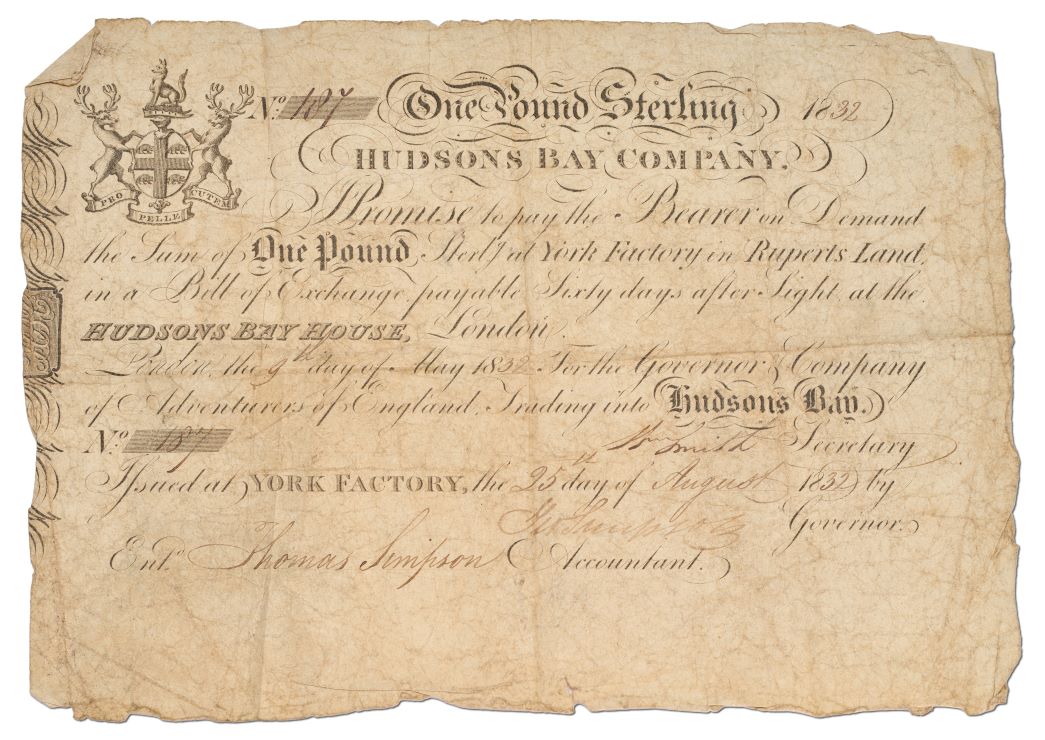 No. 187 One Pound Sterling 1832
HUDSONS BAY COMPANY.
PRO PELLE CUTEM
I Promise to pay the Bearer on Demand
the Sum of One Pound Sterlg. at York Factory in Ruperts Land,
in a Bill of Exchange payable Sixty days after Sight at the
HUDSONS BAY HOUSE, London.
London, the 9th day of May 1832. For the Governor & Company
of Adventurers of England, Trading into Hudsons Bay.
No. 187 Wm Smith Secretary
Issued at YORK FACTORY, the 25th day of August 1832 by
Geo Simpson Governor.
Entd. Thomas Simpson Accountant.